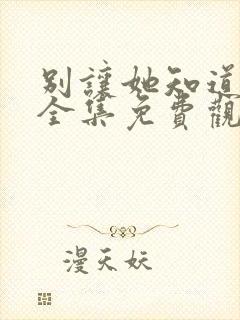 別讓她知道
全集免費觀
漫天妖